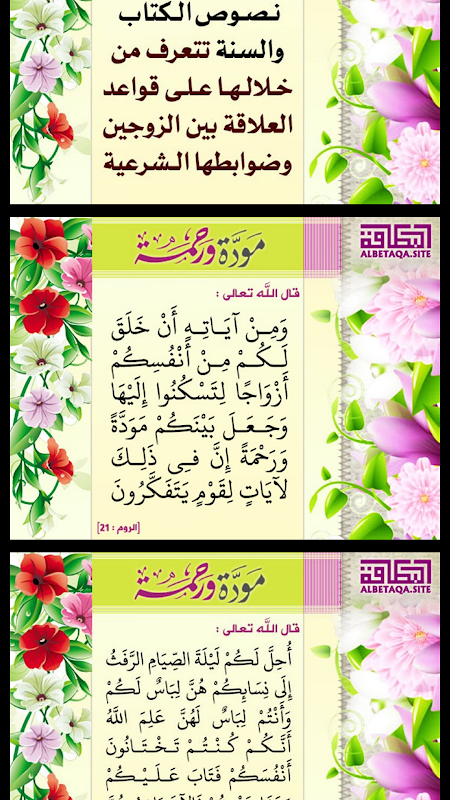 نصوص الكتاب
والسنة تتعرف من
خلالها على قواعد
العلاقة بين الزوجين
وضوابطها الشرعية
مَوَدَّة وَرَحْمَة
البطاقة
ALBETAQA.SITE
قال الله تعالى :
وَمِنْ آيَاتِهِ أَنْ خَلَقَ
لَكُمْ مِنْ أَنْفُسِكُمْ
أَزْوَاجًا لِتَسْكُنُوا إِلَيْهَا
وَجَعَلَ بَيْنَكُمْ مَوَدَّةً
وَرَحْمَةً إِنَّ فِي ذَلِكَ
لَآيَاتٍ لِقَوْمٍ يَتَفَكَّرُونَ
[الروم : 21]
مَوَدَّة وَرَحْمَة
البطاقة
ALBETAQA.SITE
قال الله تعالى :
أُحِلَّ لَكُمْ لَيْلَةَ الصِّيَامِ الرَّفَثُ
إِلَى نِسَائِكُمْ هُنَّ لِبَاسٌ لَكُمْ
وَأَنْتُمْ لِبَاسٌ لَهُنَّ عَلِمَ اللَّهُ
أَنَّكُمْ كُنْتُمْ تَخْتَانُونَ
أَنْفُسَكُمْ فَتَابَ عَلَيْكُمْ